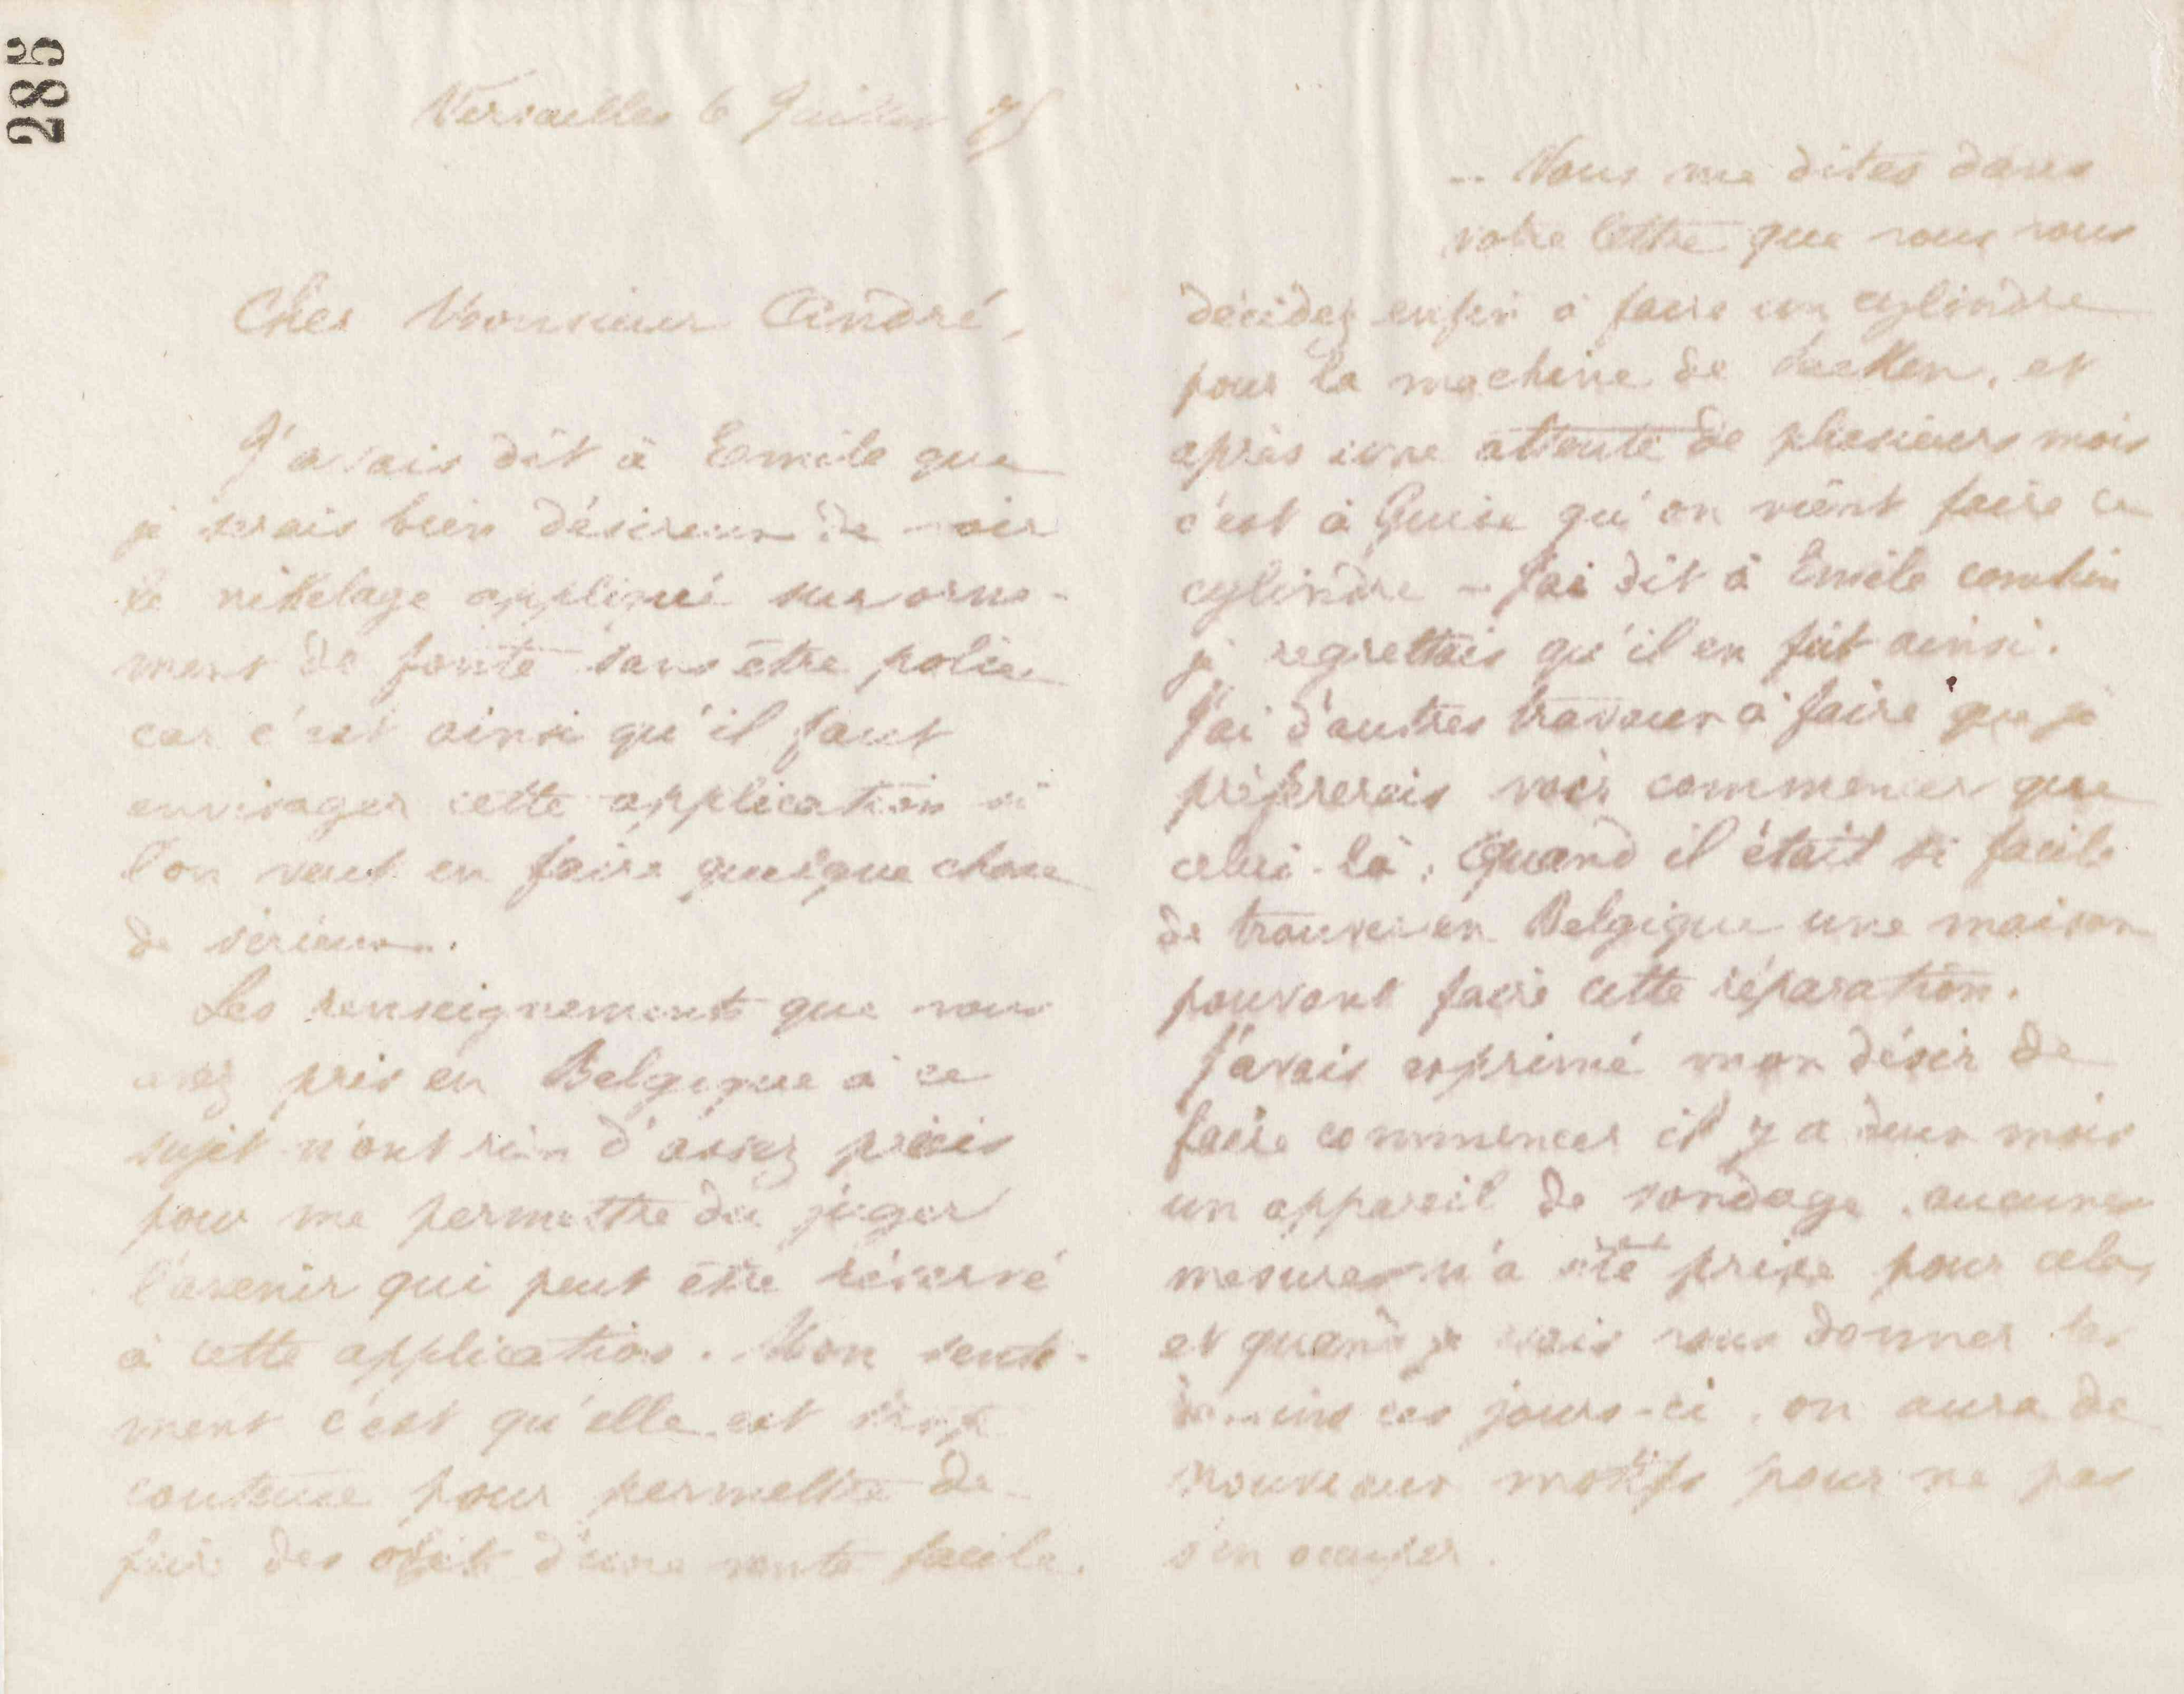 285
Versailles 6 Juillet 75
Cher Monsieur André,
J'avais dit à Emile que
je serais bien désireux de voir
le nikelage appliqué sur orne-
ment de fonte sans être polie
car c'est ainsi qu'il faut
envisager cette application si
l'on veut en faire quelque chose
de sérieux.
Les renseignements que vous
avez pris en Belgique à ce
sujet n'ont rien d'assez précis
pour me permettre de juger
l'avenir qui peut être réservé
à cette application. Mon senti-
ment c'est qu'elle est trop
couteuse pour permettre de
faire des objets d'une vente facile.
.. Vous me dites dans
votre lettre que vous vous
décidez enfin à faire un cylindre
pour la machine de Laeken, et
après une attente de plusieurs mois
c'est à Guise qu'on vient faire ce
cylindre – J'ai dit à Emile combien
je regrettais qu'il en fût ainsi.
J'ai d'autres travaux à faire que je
préfererais voir commencer que
celui-là, Quand il était si facile
de trouver en Belgique une maison
pouvant faire cette réparation.
J'avais exprimé mon désir de
faire commencer il y a deux mois
un appareil de sondage, aucunes
mesures n'a été prise pour cela,
et quand je vais vous donner les
dessins ces jours-ci, on aura de
nouveaux motifs pour ne pas
s'en occuper.